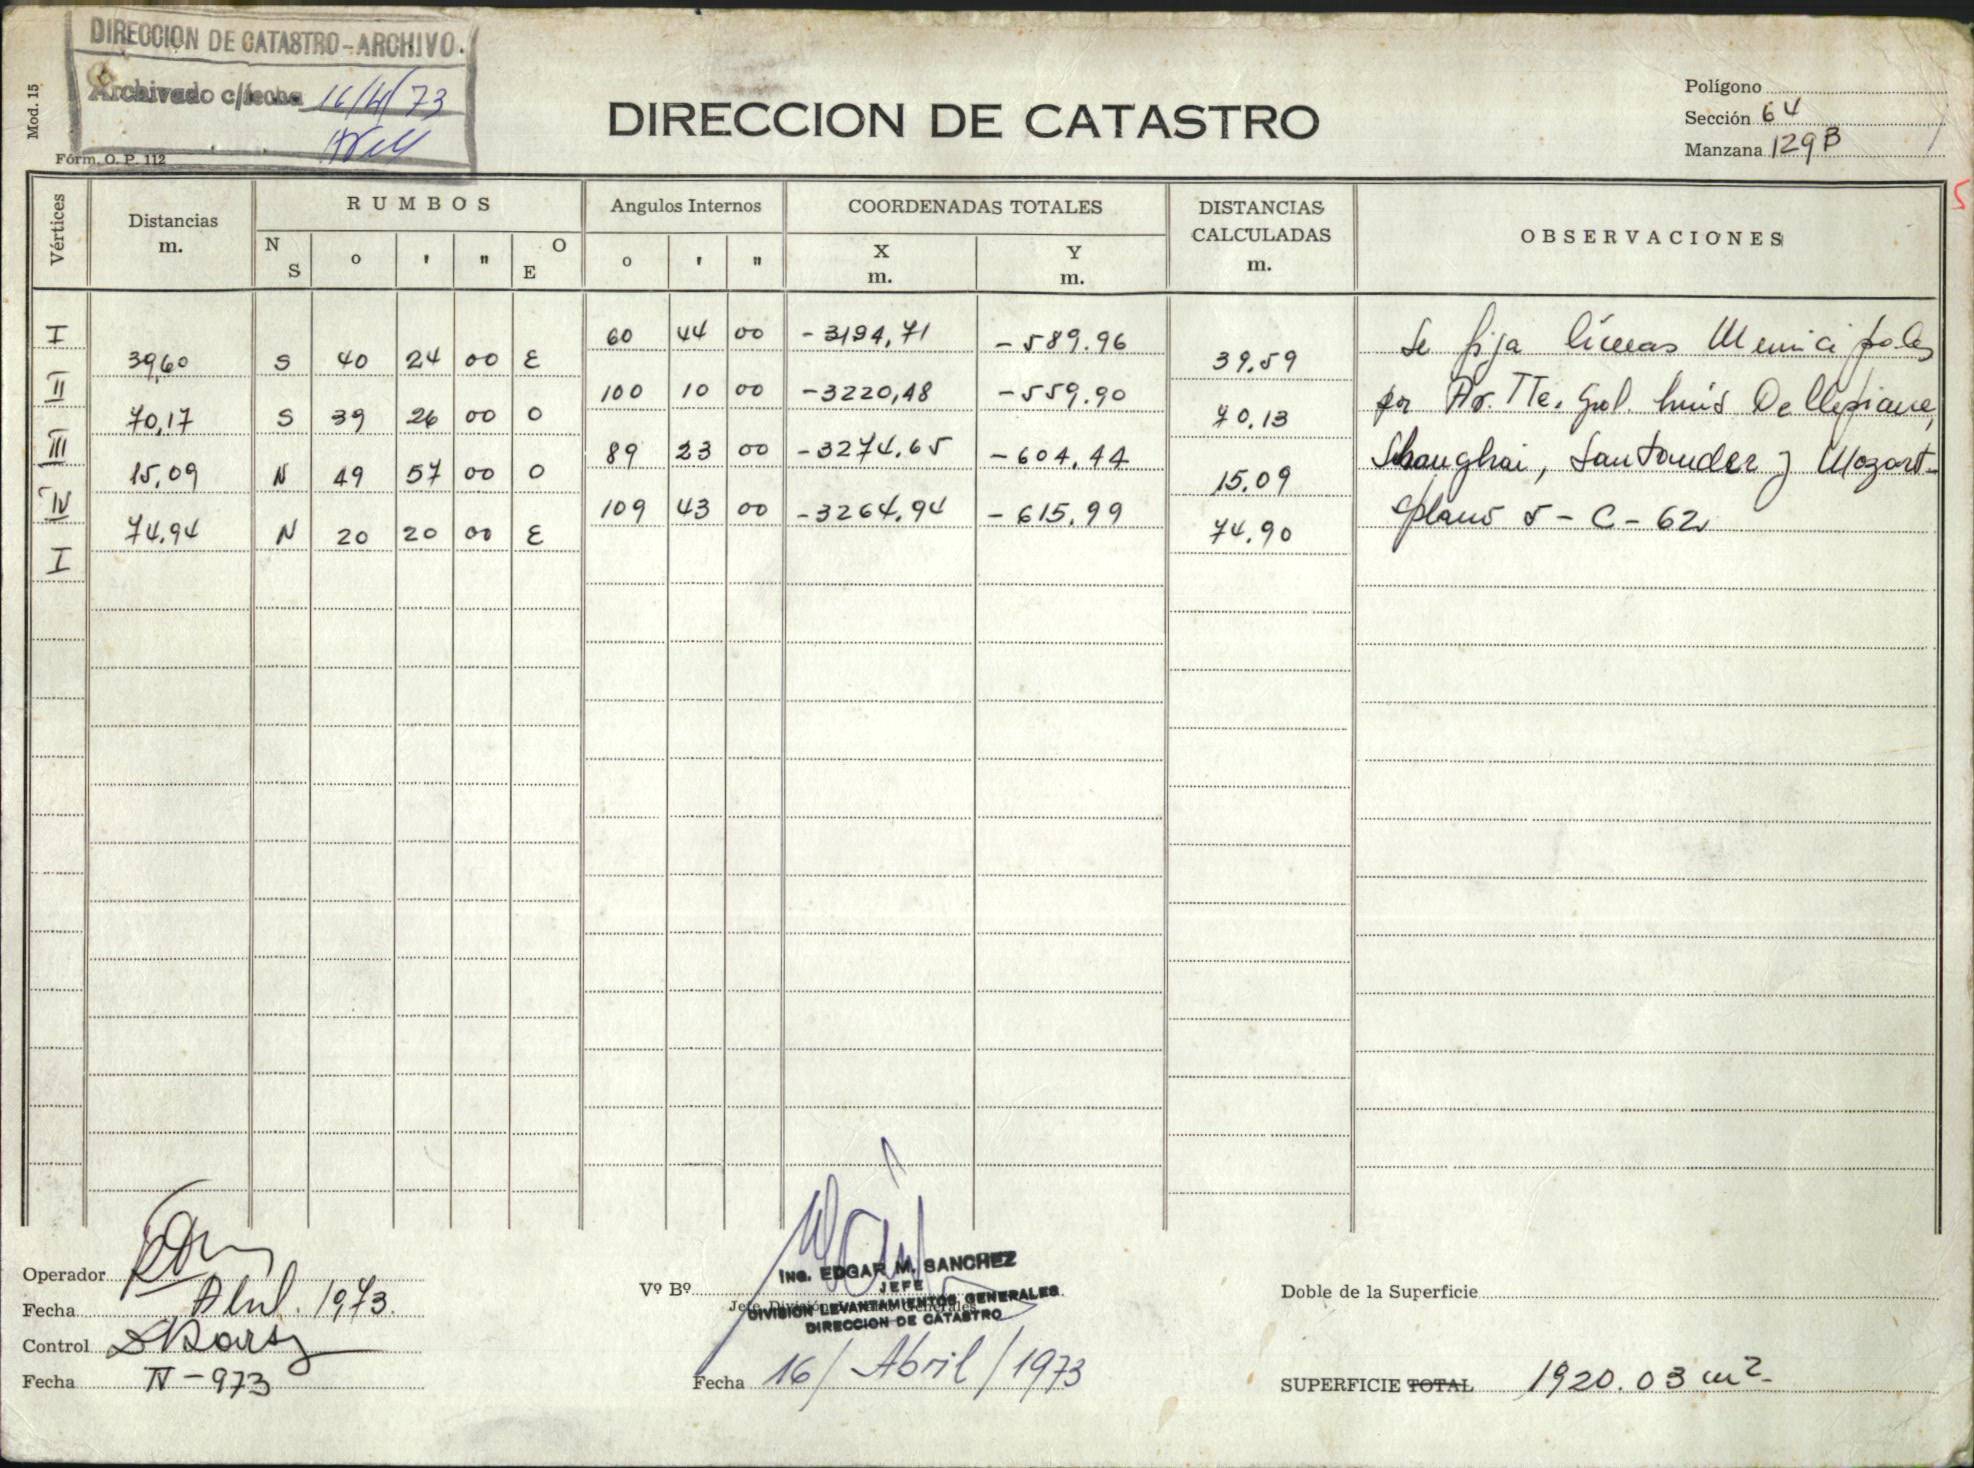 DIRECCION DE CATASTRO-ARCHIVO.
Archivado c/fecha 16/4/73
Mod. 15
Fórm. O. P. 112
DIRECCION DE CATASTRO
Polígono
Sección 64
Manzana 129B
5
Vértices Distancias m. RUMBOS N S o ' " O E Angulos Internos o ' " COORDENADAS TOTALES X m. Y m. DISTANCIAS CALCULADAS m. OBSERVACIONES
I 60 44 00 -3194,71 -589.96
39,60 S 40 24 00 E 39.59
II 100 10 00 -3220,48 -559.90
70,17 S 39 26 00 O 70.13
III 89 23 00 -3274.65 -604,44
15,09 N 49 57 00 O 15.09
IV 109 43 00 -3264.94 -615,99
74.94 N 20 20 00 E 74.90
I
Se fija líneas Municipales
por Av. Tte. Gral. Luis Dellepiane,
Shanghai, Santander y Mozart-
plano 5-C-62
Operador
Fecha Abril. 1973.
Control
Fecha IV-973
Vº Bº
Ing. EDGAR M. SANCHEZ
JEFE
DIVISION LEVANTAMIENTOS GENERALES
DIRECCION DE CATASTRO
Fecha 16/Abril/1973
Doble de la Superficie
SUPERFICIE TOTAL 1920.03 m2-